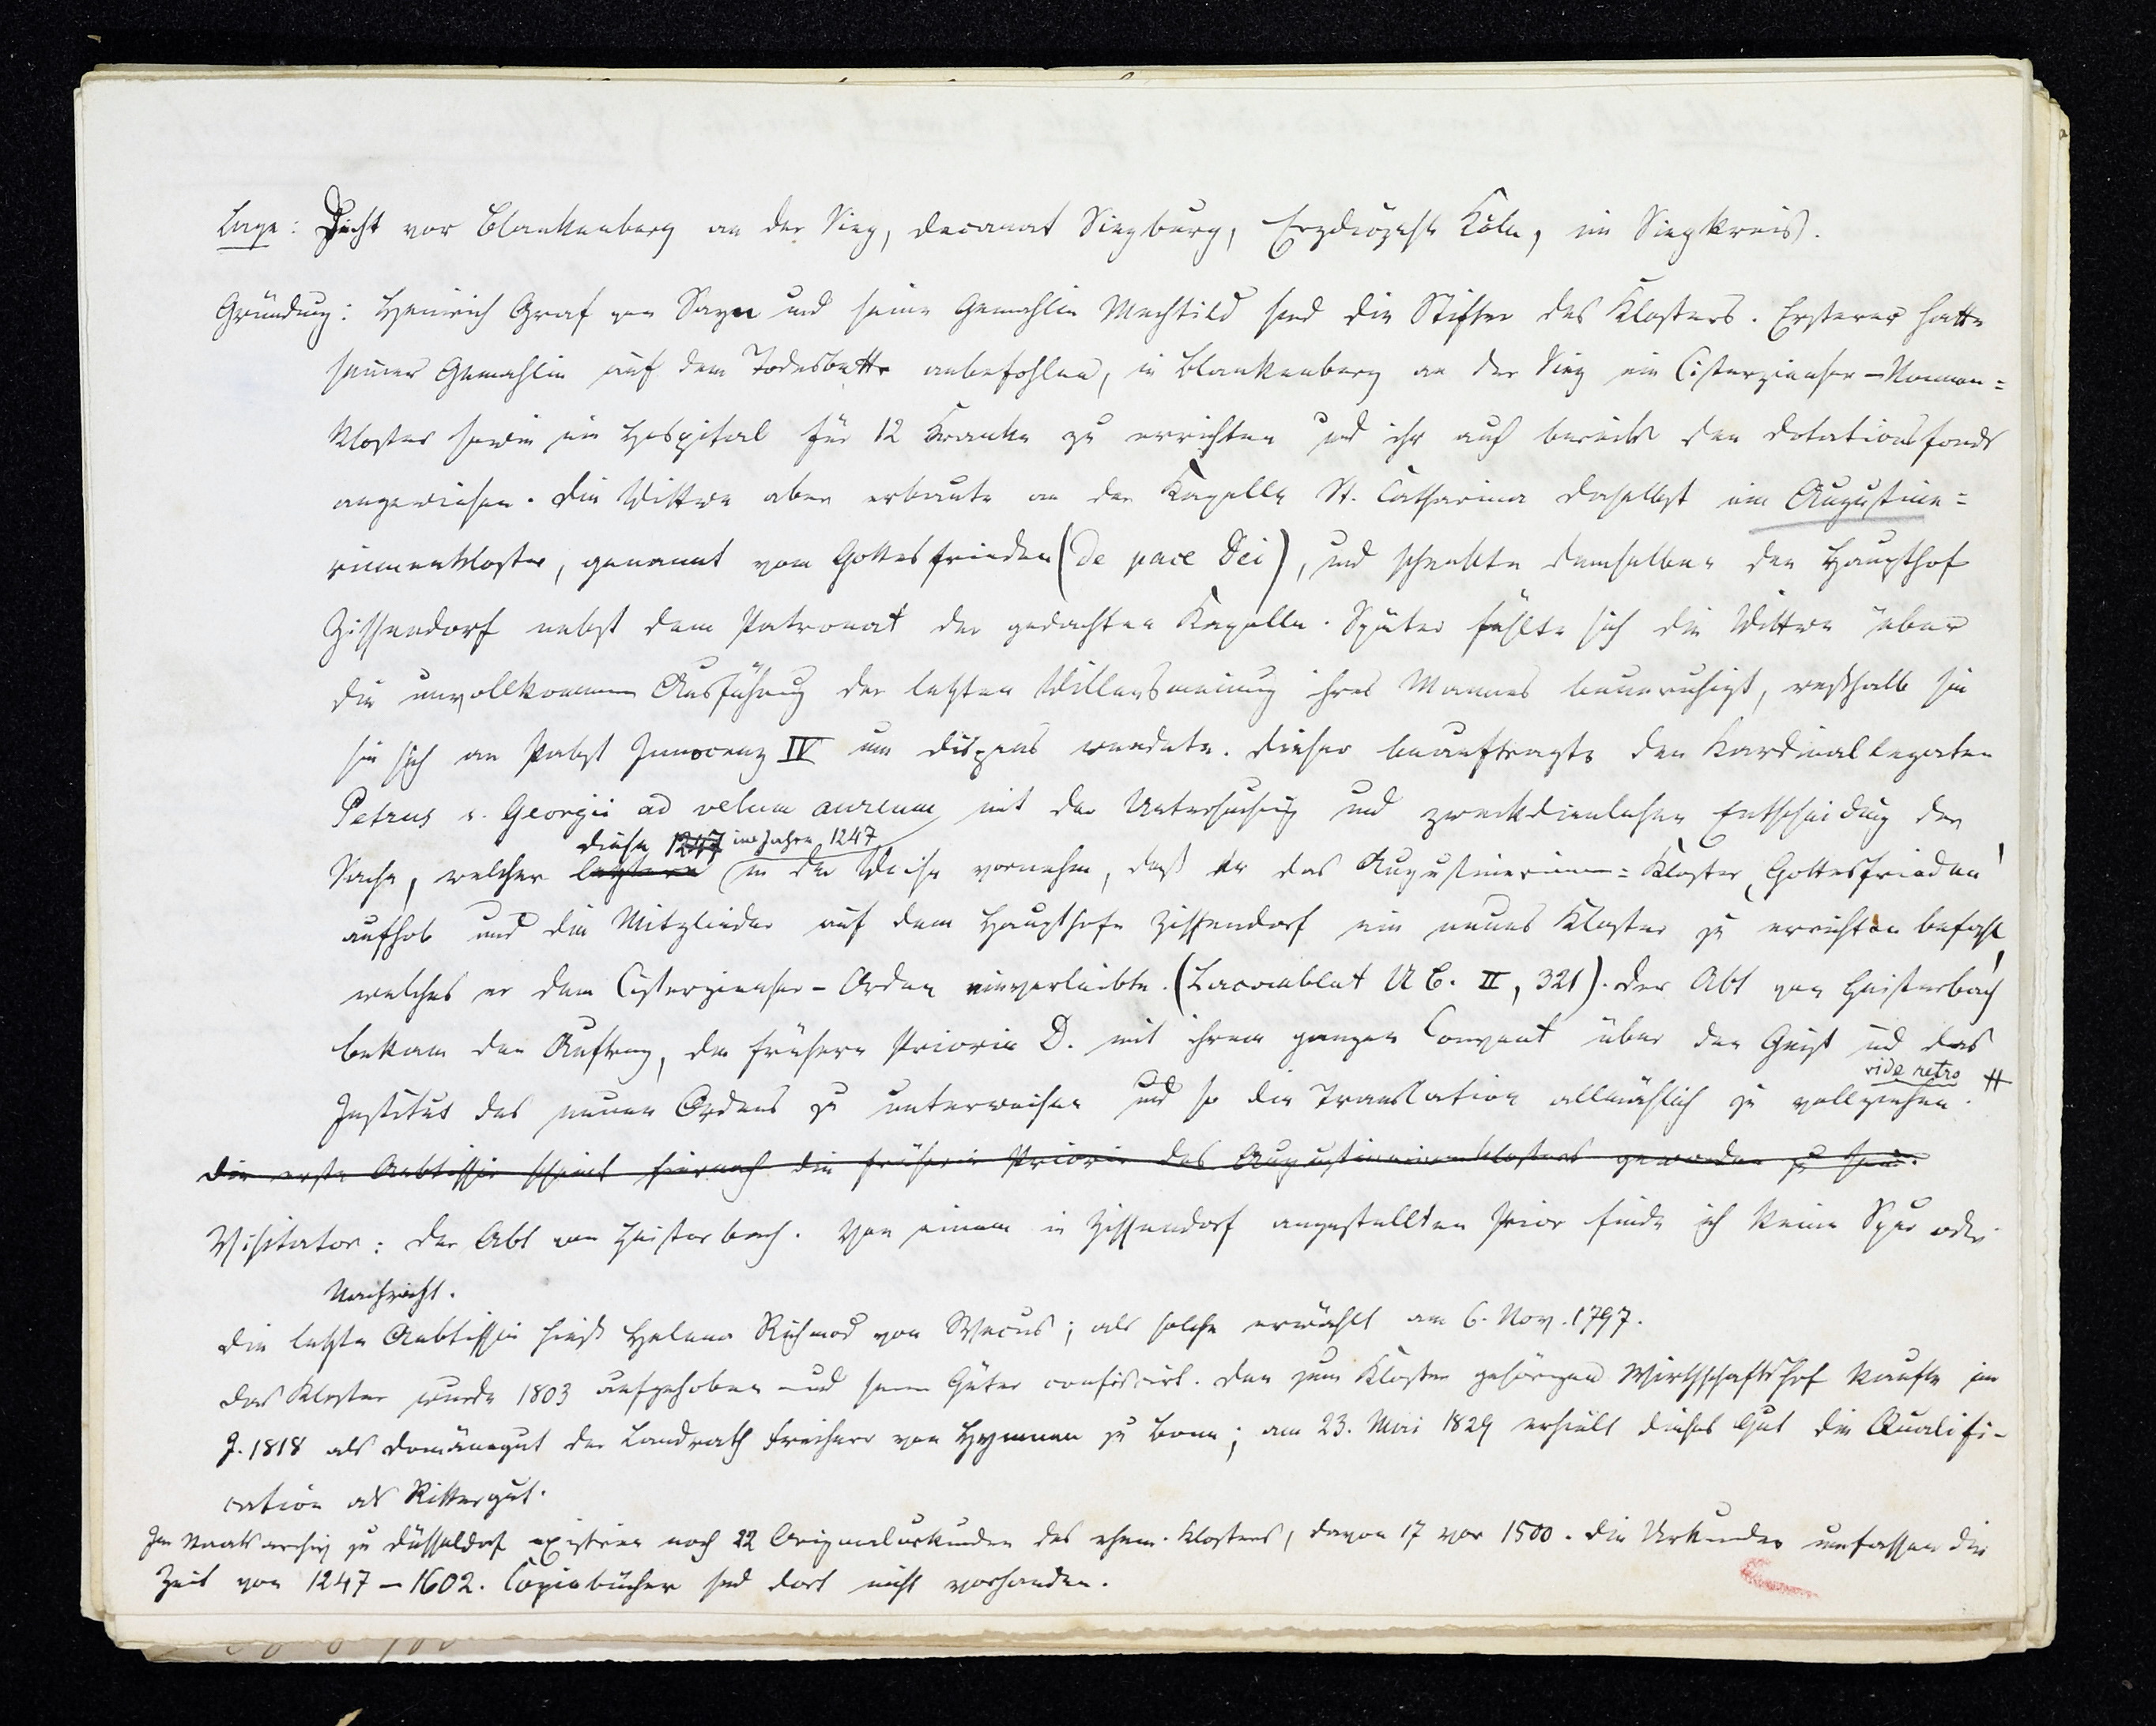 Lage: Dicht vor Blankenberg an der Sieg, Decanat Siegburg, Erzdiözese Köln, im Siegkreis.
Gründung: Heinrich Graf von Sayn und seine Gemahlin Mechtild sind die Stifter des Klosters. Ersterer hatte
seiner Gemahlin auf dem Todesbette anbefohlen, in Blankenberg an der Sieg ein Cisterzienser-Nonnen=
kloster sowie ein Hospital für 12 Kranke zu errichten und ihr auch bereits den Dotationsfonds
angewiesen. Die Wittwe aber erbaute an der Kapelle St. Catharina daselbst ein Augustine=
rinnenkloster, genannt vom Gottesfrieden (de pace Dei), und schenkte demselben den Haupthof
Zissendorf nebst dem Patronat der gedachten Kapelle. Später fühlte sich die Wittwe über
die unvollkommene Ausführung der letzten Willensmeinung ihres Mannes beunruhigt, weßhalb sie
sie sich an Pabst Innocenz IV um Dispens wendete. Dieser beauftragte den Kardinallegaten
Petrus s. Georgii ad velum aureum mit der Untersuchung und zweckdienlichen Entscheidung der
diese 1247 im Jahre 1247
Sache, welcher letztere in der Weise vornahm, daß er das Augustinerinnen=Kloster „Gottesfrieden“
aufhob und die Mitglieder auf dem Haupthofe Zissendorf ein neues Kloster zu errichten befahl,
welches er dem Cisterzienser-Orden einverleibte. (Lacomblet UB. II, 321). Der Abt von Heisterbach
bekam den Auftrag, die frühere Priorin D. mit ihrem ganzen Convent über den Geist und das
vide retro #
Institut des neuen Ordens zu unterweisen und so die Translation allmählich zu vollziehen.
Die erste Aebtissin scheint hiernach die frühere Priorin des Augustinerinnenklosters geworden zu sein.
Visitator: Der Abt von Heisterbach. Von einem in Zissendorf angestellten Prior finde ich keine Spur oder
Nachricht.
Die letzte Aebtissin hieß Helena Richmod von Wecus; als solche erwählt am 6. Nov. 1797.
Das Kloster wurde 1803 aufgehoben und seine Güter confiscirt. Den zum Kloster gehörigen Wirthschaftshof kaufte im
J. 1818 als Domänegut der Landrath Freiherr von Hymmen zu Bonn; am 23. Mai 1829 erhielt dieses Gut die Qualifi-
cation als Rittergut.
Im Staatsarchiv zu Düsseldorf existiren noch 22 Originalurkunden des ehem. Klosters, davon 17 vor 1500. Die Urkunden umfassen die
Zeit von 1247-1602. Copiebücher sind dort nicht vorhanden.